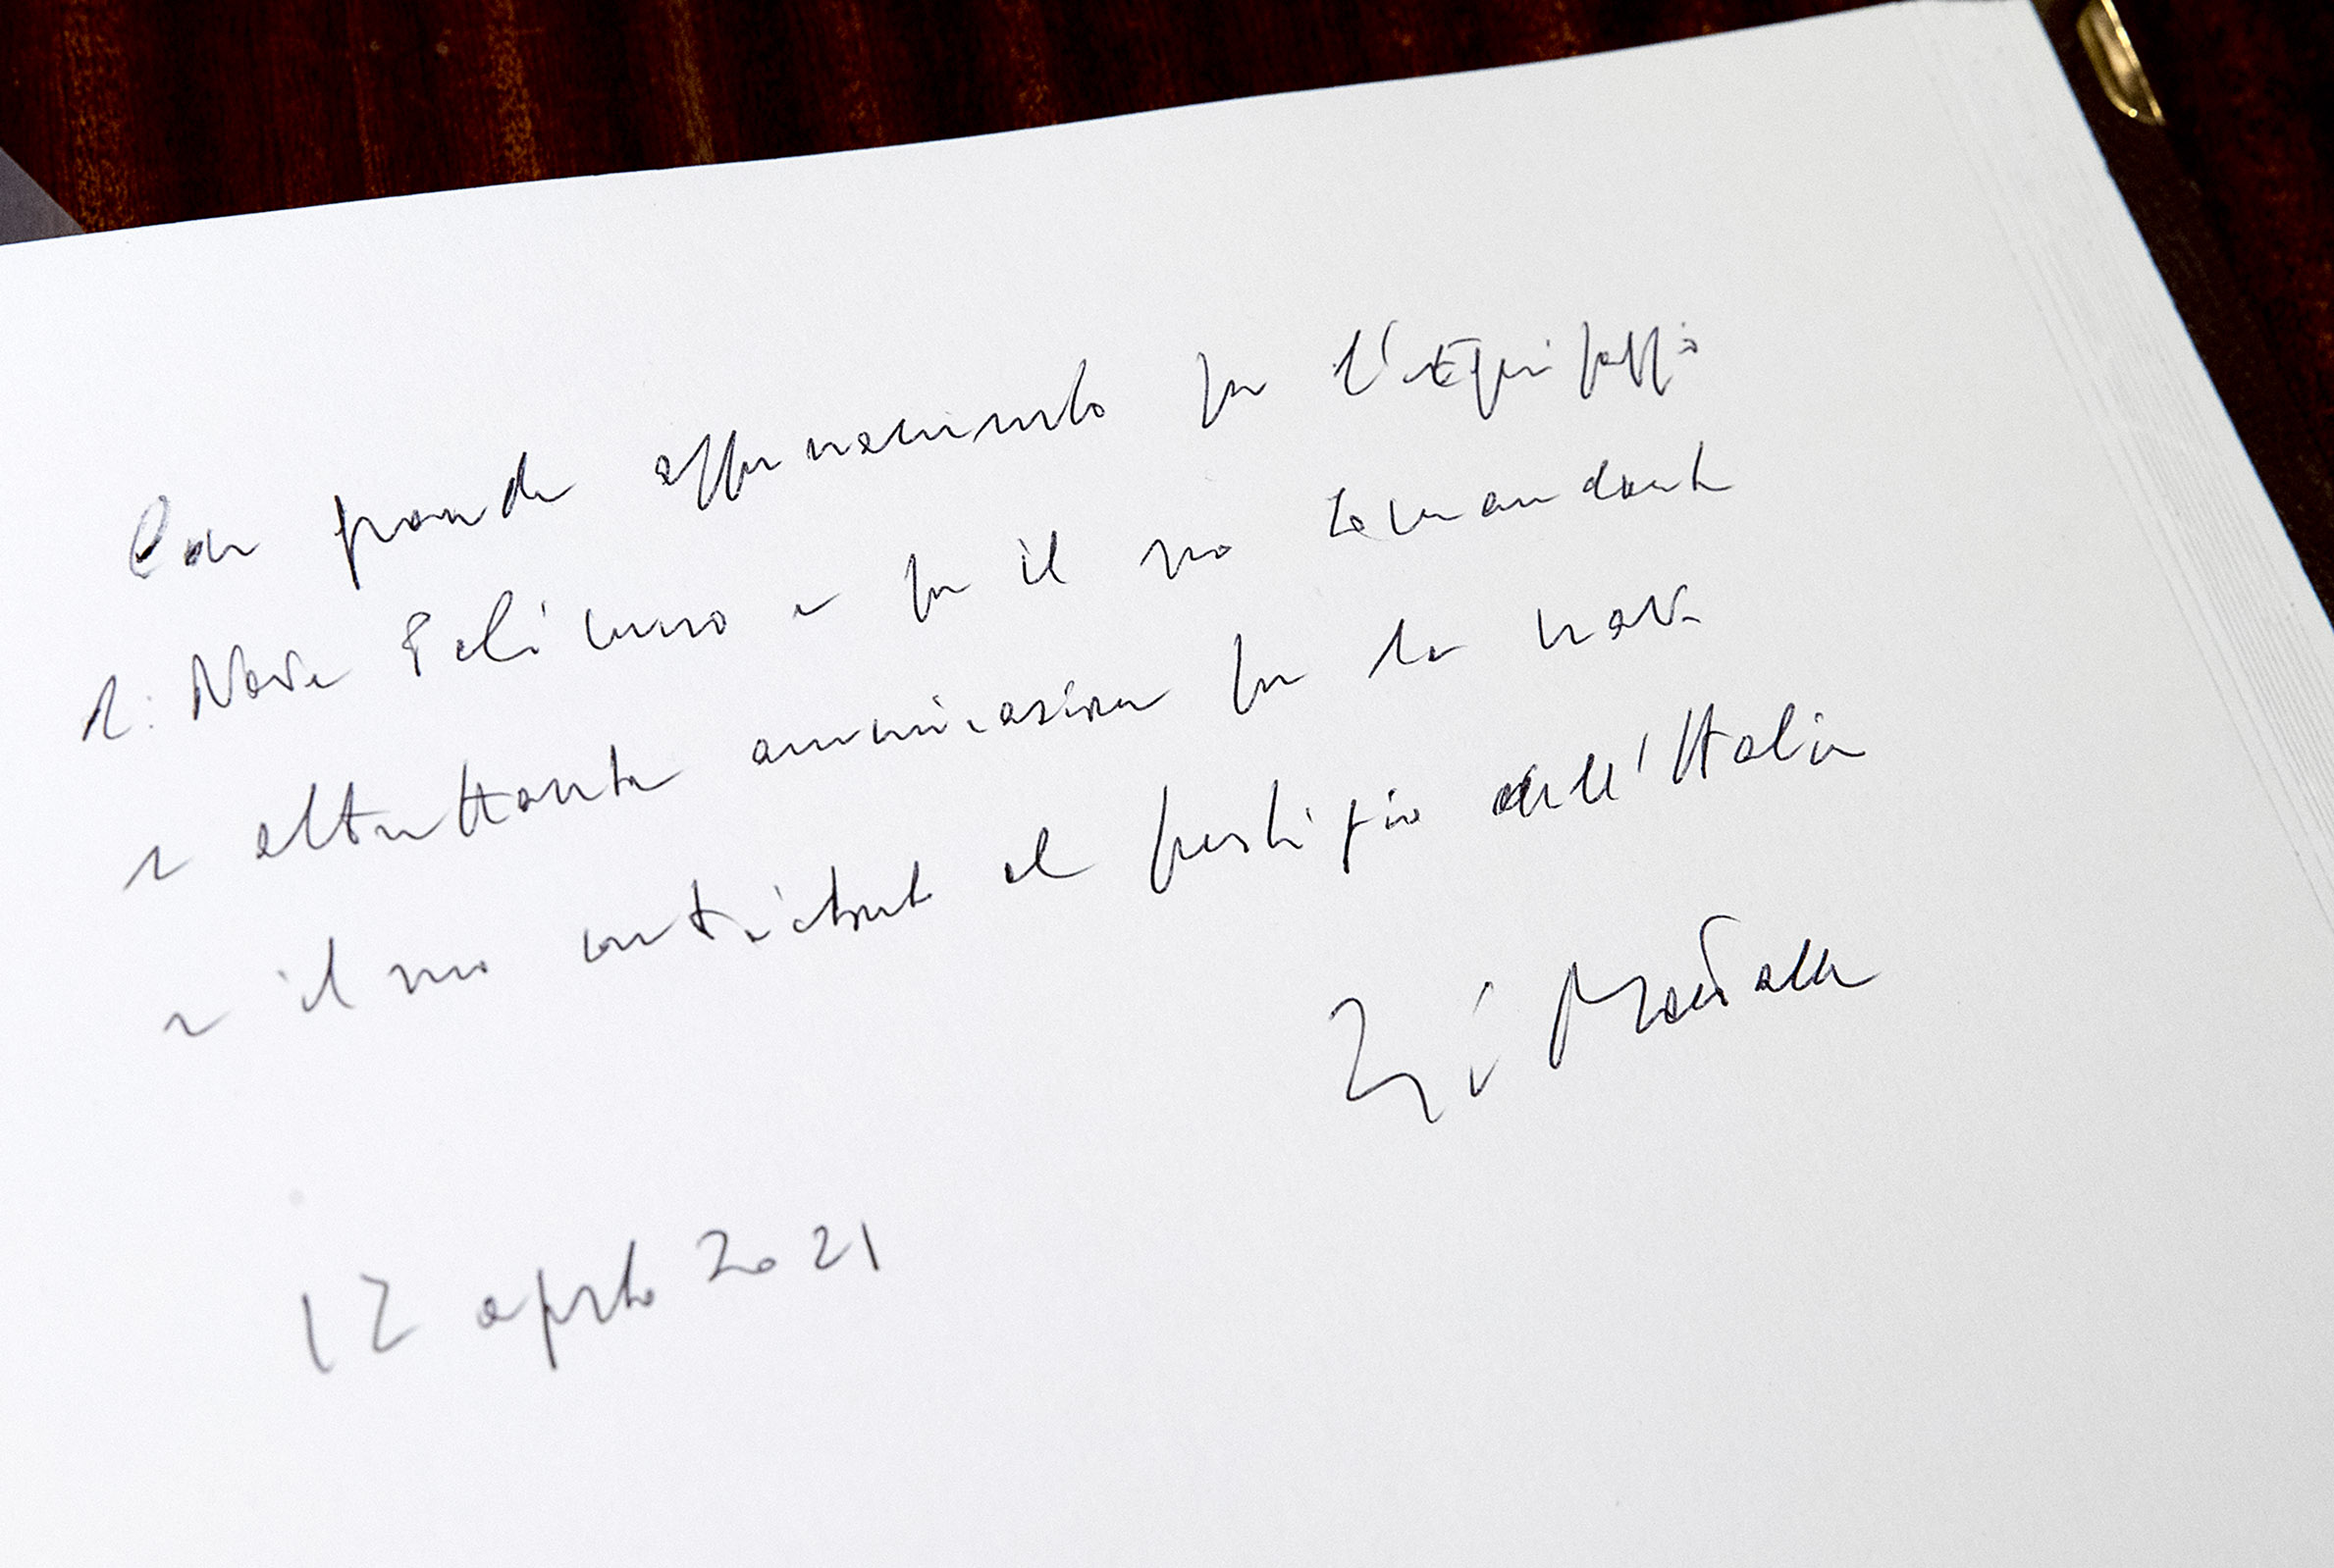 Con grande apprezzamento per l'equipaggio
di Nave Pelicano e per il suo comandante
e altrettanta ammirazione per la nave
e il suo contributo al prestigio dell'Italia
Sergio Mattarella
12 aprile 2021